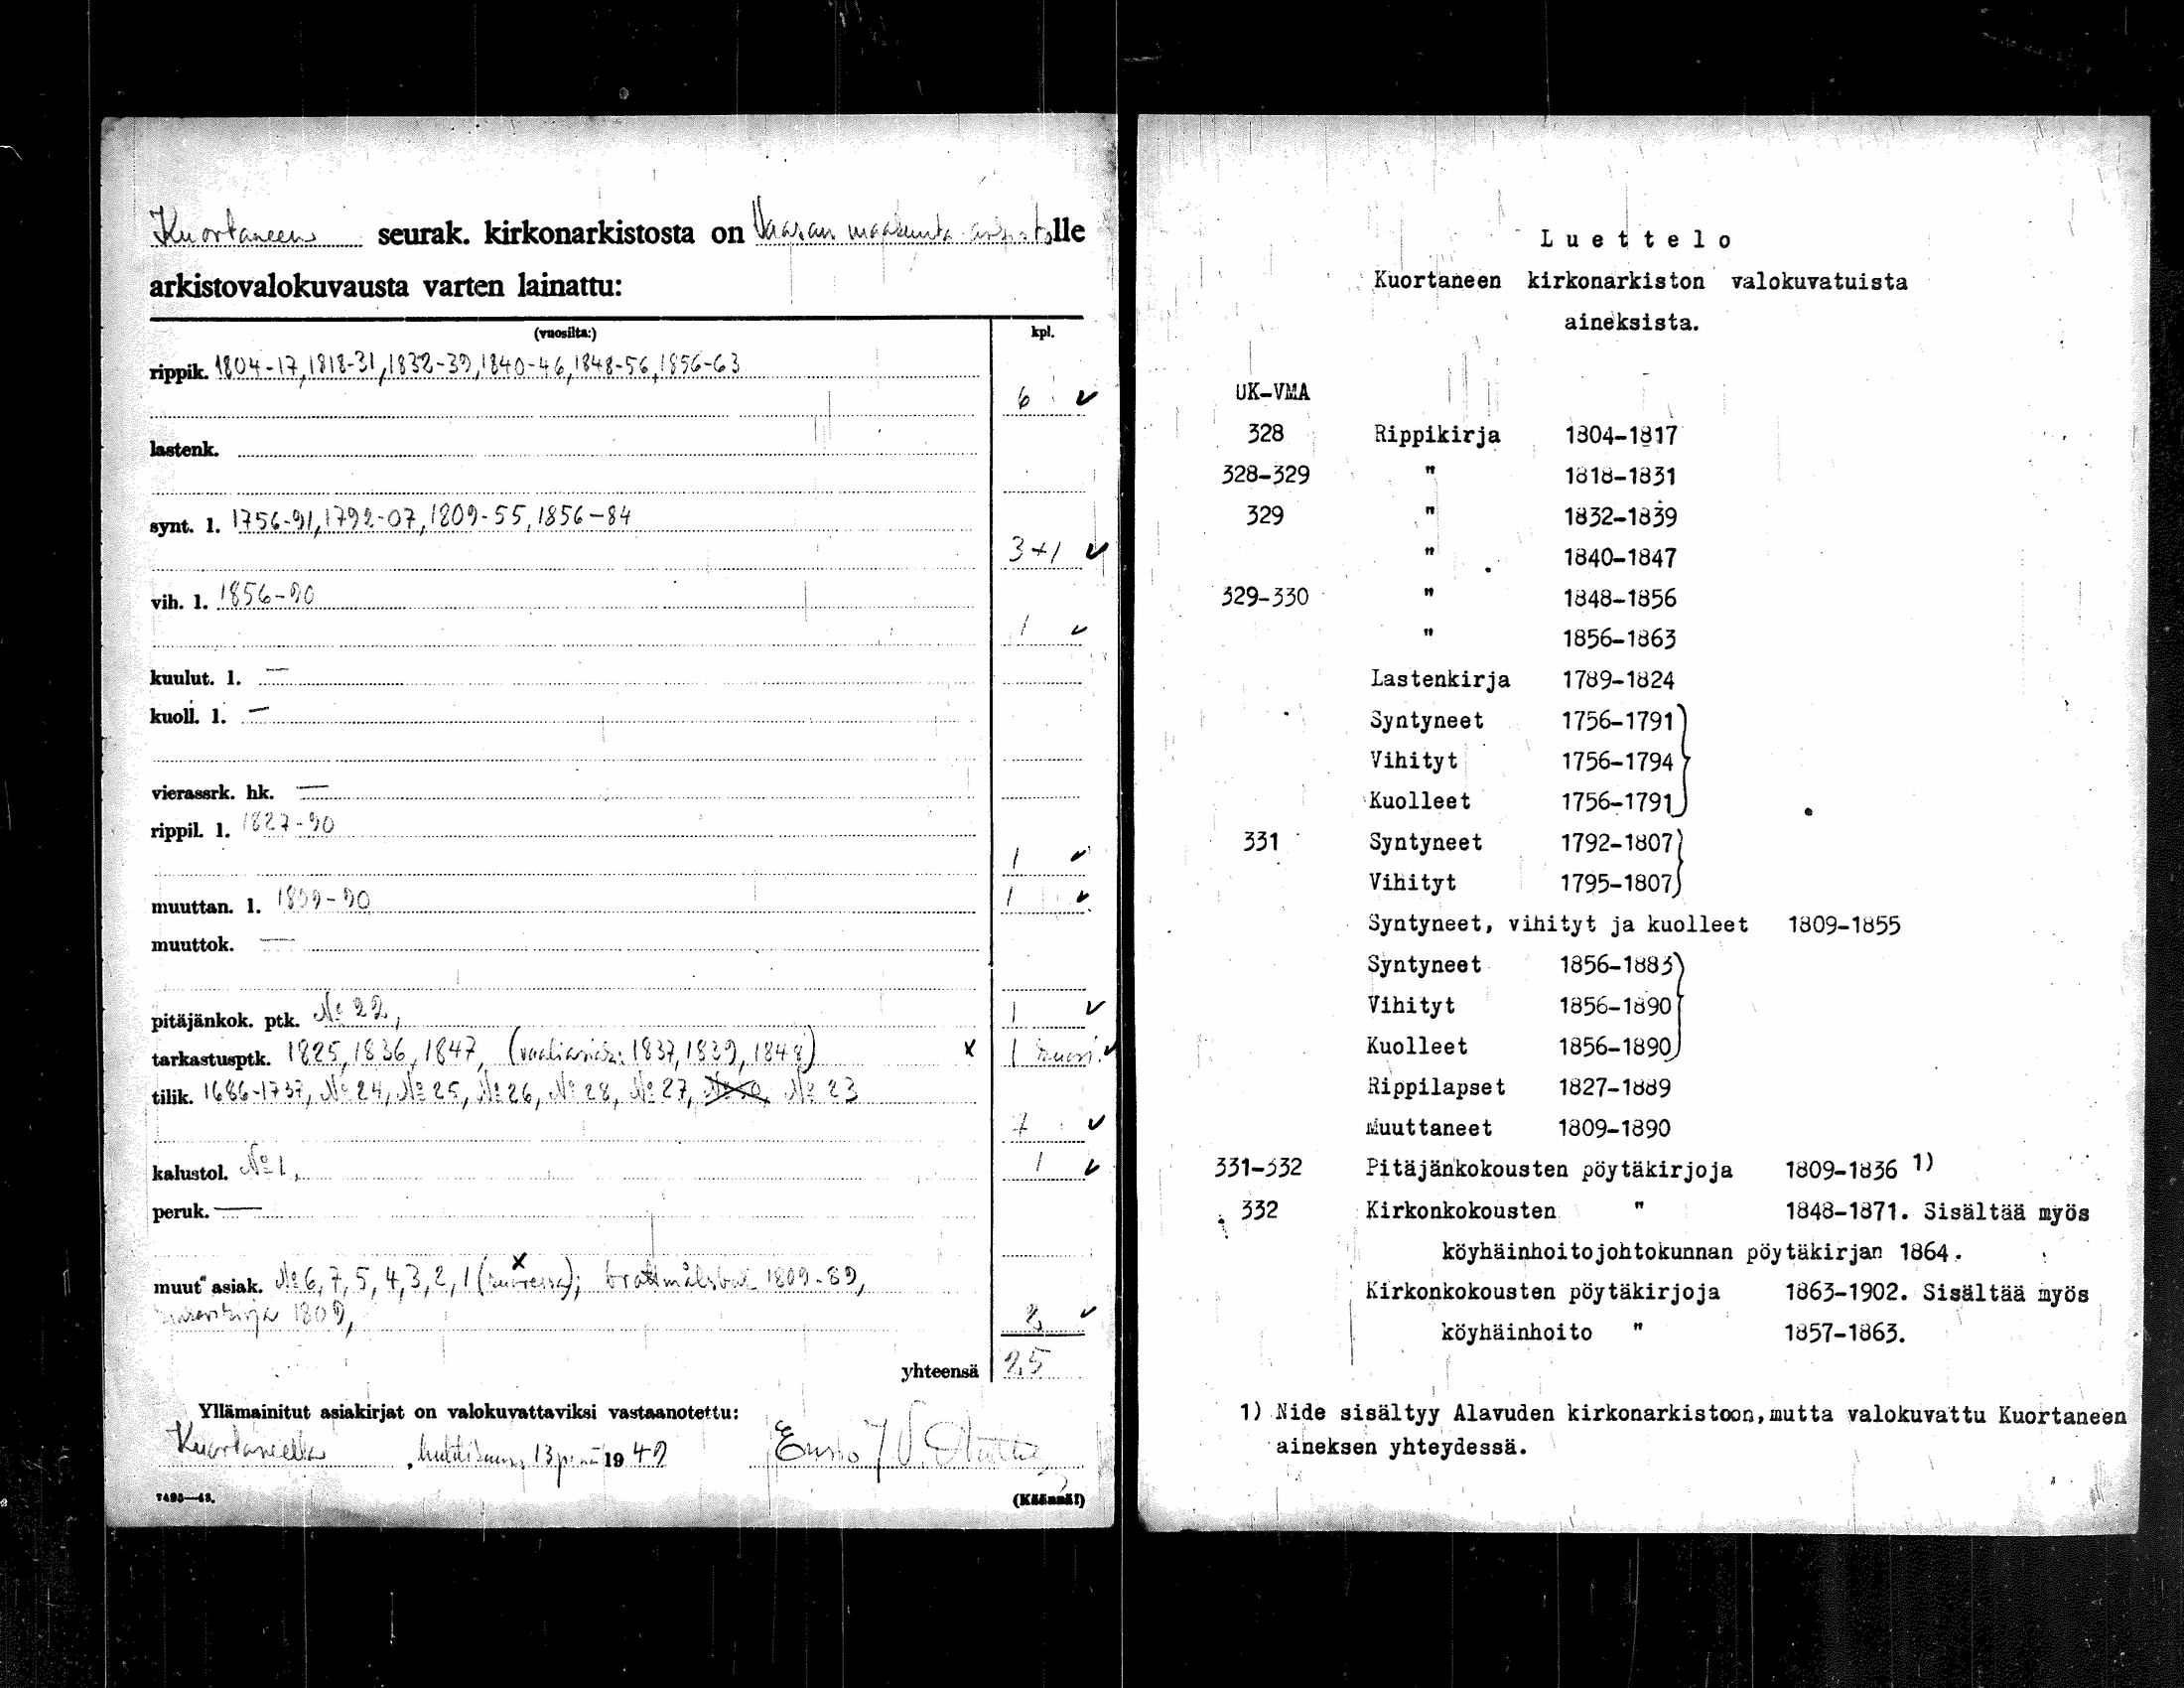 Kuortaneen seurak. kirkonarkistosta on Vaasan maakunta-arkistolle
arkistovalokuvausta varten lainattu:
(vuosilta:) kpl.
rippik. 1804-17, 1818-31, 1832-39, 1840-46, 1848-56, 1856-63
6 ✓
lastenk.
synt. l. 1756-91, 1792-07, 1809-55, 1856-84
3+1 ✓
vih. l. 1856-90
1 ✓
kuulut. l. —
kuoll. l. —
vierassrk. hk. —
rippil. l. 1827-90
1 ✓
muuttan. l. 1809-90 1 ✓
muuttok. —
pitäjänkok. ptk. No 22, 1 ✓
tarkastusptk. 1825, 1836, 1847, (vaaliasiak: 1837, 1839, 1848) x 1 ✓
tilik. 1686-1737, No 24, No 25, No 26, No 28, No 27, No 23
7 ✓
kalustol. No 1, 1 ✓
peruk. —
muut asiak. No 6, 7, 5, 4, 3, 2, 1 x 1809-89,
1809, 2 ✓
yhteensä 25
Yllämainitut asiakirjat on valokuvattaviksi vastaanotettu:
Kuortaneella, huhtikuun 13 p:nä 1949
7495—43. (Käännä!)
Luettelo
Kuortaneen kirkonarkiston valokuvatuista
aineksista.
UK-VMA
328 Rippikirja 1804-1817
328-329 " 1818-1831
329 " 1832-1839
" 1840-1847
329-330 " 1848-1856
" 1856-1863
Lastenkirja 1789-1824
Syntyneet 1756-1791
Vihityt 1756-1794
Kuolleet 1756-1791
331 Syntyneet 1792-1807
Vihityt 1795-1807
Syntyneet, vihityt ja kuolleet 1809-1855
Syntyneet 1856-1883
Vihityt 1856-1890
Kuolleet 1856-1890
Rippilapset 1827-1889
Muuttaneet 1809-1890
331-332 Pitäjänkokousten pöytäkirjoja 1809-1836 1)
332 Kirkonkokousten " 1848-1871. Sisältää myös
köyhäinhoitojohtokunnan pöytäkirjan 1864.
Kirkonkokousten pöytäkirjoja 1863-1902. Sisältää myös
köyhäinhoito " 1857-1863.
1) Nide sisältyy Alavuden kirkonarkistoon, mutta valokuvattu Kuortaneen
aineksen yhteydessä.